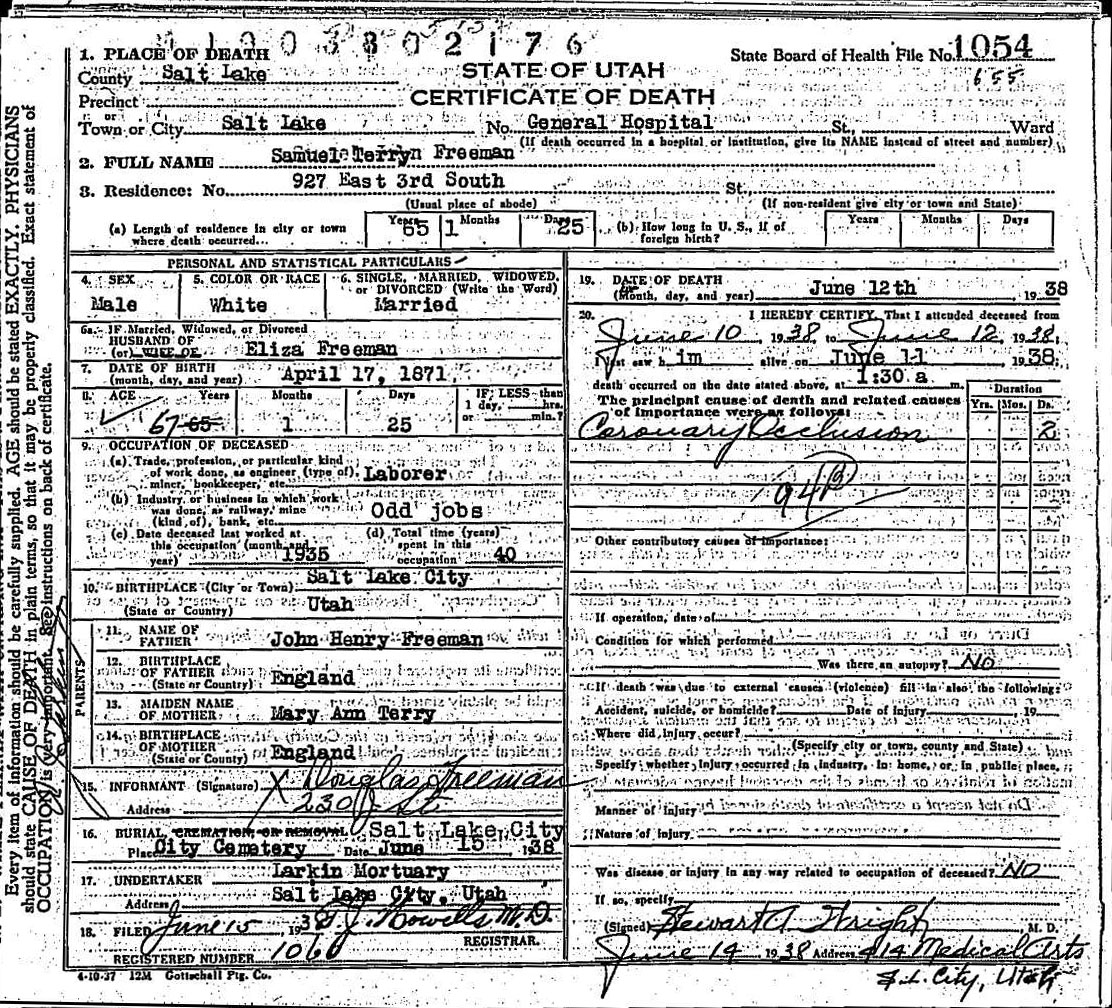 1 9 0 3 8 0 2 1 7 6
1. PLACE OF DEATH
State Board of Health File No. 1054
County Salt Lake
STATE OF UTAH
655
Precinct
CERTIFICATE OF DEATH
or
Town or City Salt Lake No. General Hospital St., Ward
(If death occurred in a hospital or institution, give its NAME instead of street and number)
2. FULL NAME Samuel Terry Freeman
3. Residence: No. 927 East 3rd South St.,
(Usual place of abode) (If non-resident give city or town and State)
(a) Length of residence in city or town where death occurred... Years 65 Months 1 Days 25
(b) How long in U. S., if of foreign birth? Years Months Days
PERSONAL AND STATISTICAL PARTICULARS
4. SEX Male
5. COLOR OR RACE White
6. SINGLE, MARRIED, WIDOWED, or DIVORCED (Write the Word) Married
6a. If Married, Widowed, or Divorced
HUSBAND OF
(or) WIFE OF Eliza Freeman
7. DATE OF BIRTH
(month, day, and year) April 17, 1871
8. AGE Years 67 65 Months 1 Days 25 IF LESS than 1 day, hrs. or min.?
9. OCCUPATION OF DECEASED
(a) Trade, profession, or particular kind
of work done, as engineer (type of),
miner, bookkeeper, etc. Laborer
(b) Industry or business in which work
was done, as railway, mine
(kind of), bank, etc. Odd jobs
(c) Date deceased last worked at
this occupation (month and
year) 1935
(d) Total time (years)
spent in this
occupation 40
10. BIRTHPLACE (City or Town) Salt Lake City
(State or Country) Utah
PARENTS
11. NAME OF
FATHER John Henry Freeman
12. BIRTHPLACE
OF FATHER
(State or Country) England
13. MAIDEN NAME
OF MOTHER Mary Ann Terry
14. BIRTHPLACE
OF MOTHER
(State or Country) England
15. INFORMANT (Signature) X Douglas Freeman
Address 230 J St
16. BURIAL, CREMATION, OR REMOVAL Salt Lake City
Place City Cemetery Date June 15 1938
17. UNDERTAKER Larkin Mortuary
Address Salt Lake City, Utah
18. FILED June 15 1938 T. J. Howells M.D.
REGISTRAR.
REGISTERED NUMBER 1060
4-10-37 12M Gottschall Ptg. Co.
19. DATE OF DEATH
(Month, day, and year) June 12th 1938
20. I HEREBY CERTIFY, That I attended deceased from
June 10, 1938, to June 12, 1938;
I last saw h im alive on June 11 1938;
death occurred on the date stated above, at 1:30 a m.
The principal cause of death and related causes
of importance were as follows:
Duration
Yrs. Mos. Ds.
Coronary Occlusion 2
94B
Other contributory causes of importance:
If operation, date of
Condition for which performed
Was there an autopsy? No
If death was due to external causes (violence) fill in also the following:
Accident, suicide, or homicide? Date of injury , 19
Where did injury occur?
(Specify city or town, county and State)
Specify whether injury occurred in industry, in home, or in public place,
Manner of injury
Nature of injury
Was disease or injury in any way related to occupation of deceased? No
If so, specify
(Signed) Stewart A Wright M. D.
June 14 1938 Address 414 Medical Arts
S.L. City, Utah
Every item of information should be carefully supplied. AGE should be stated EXACTLY. PHYSICIANS
should state CAUSE OF DEATH in plain terms, so that it may be properly classified. Exact statement of
OCCUPATION is very important. See instructions on back of certificate.